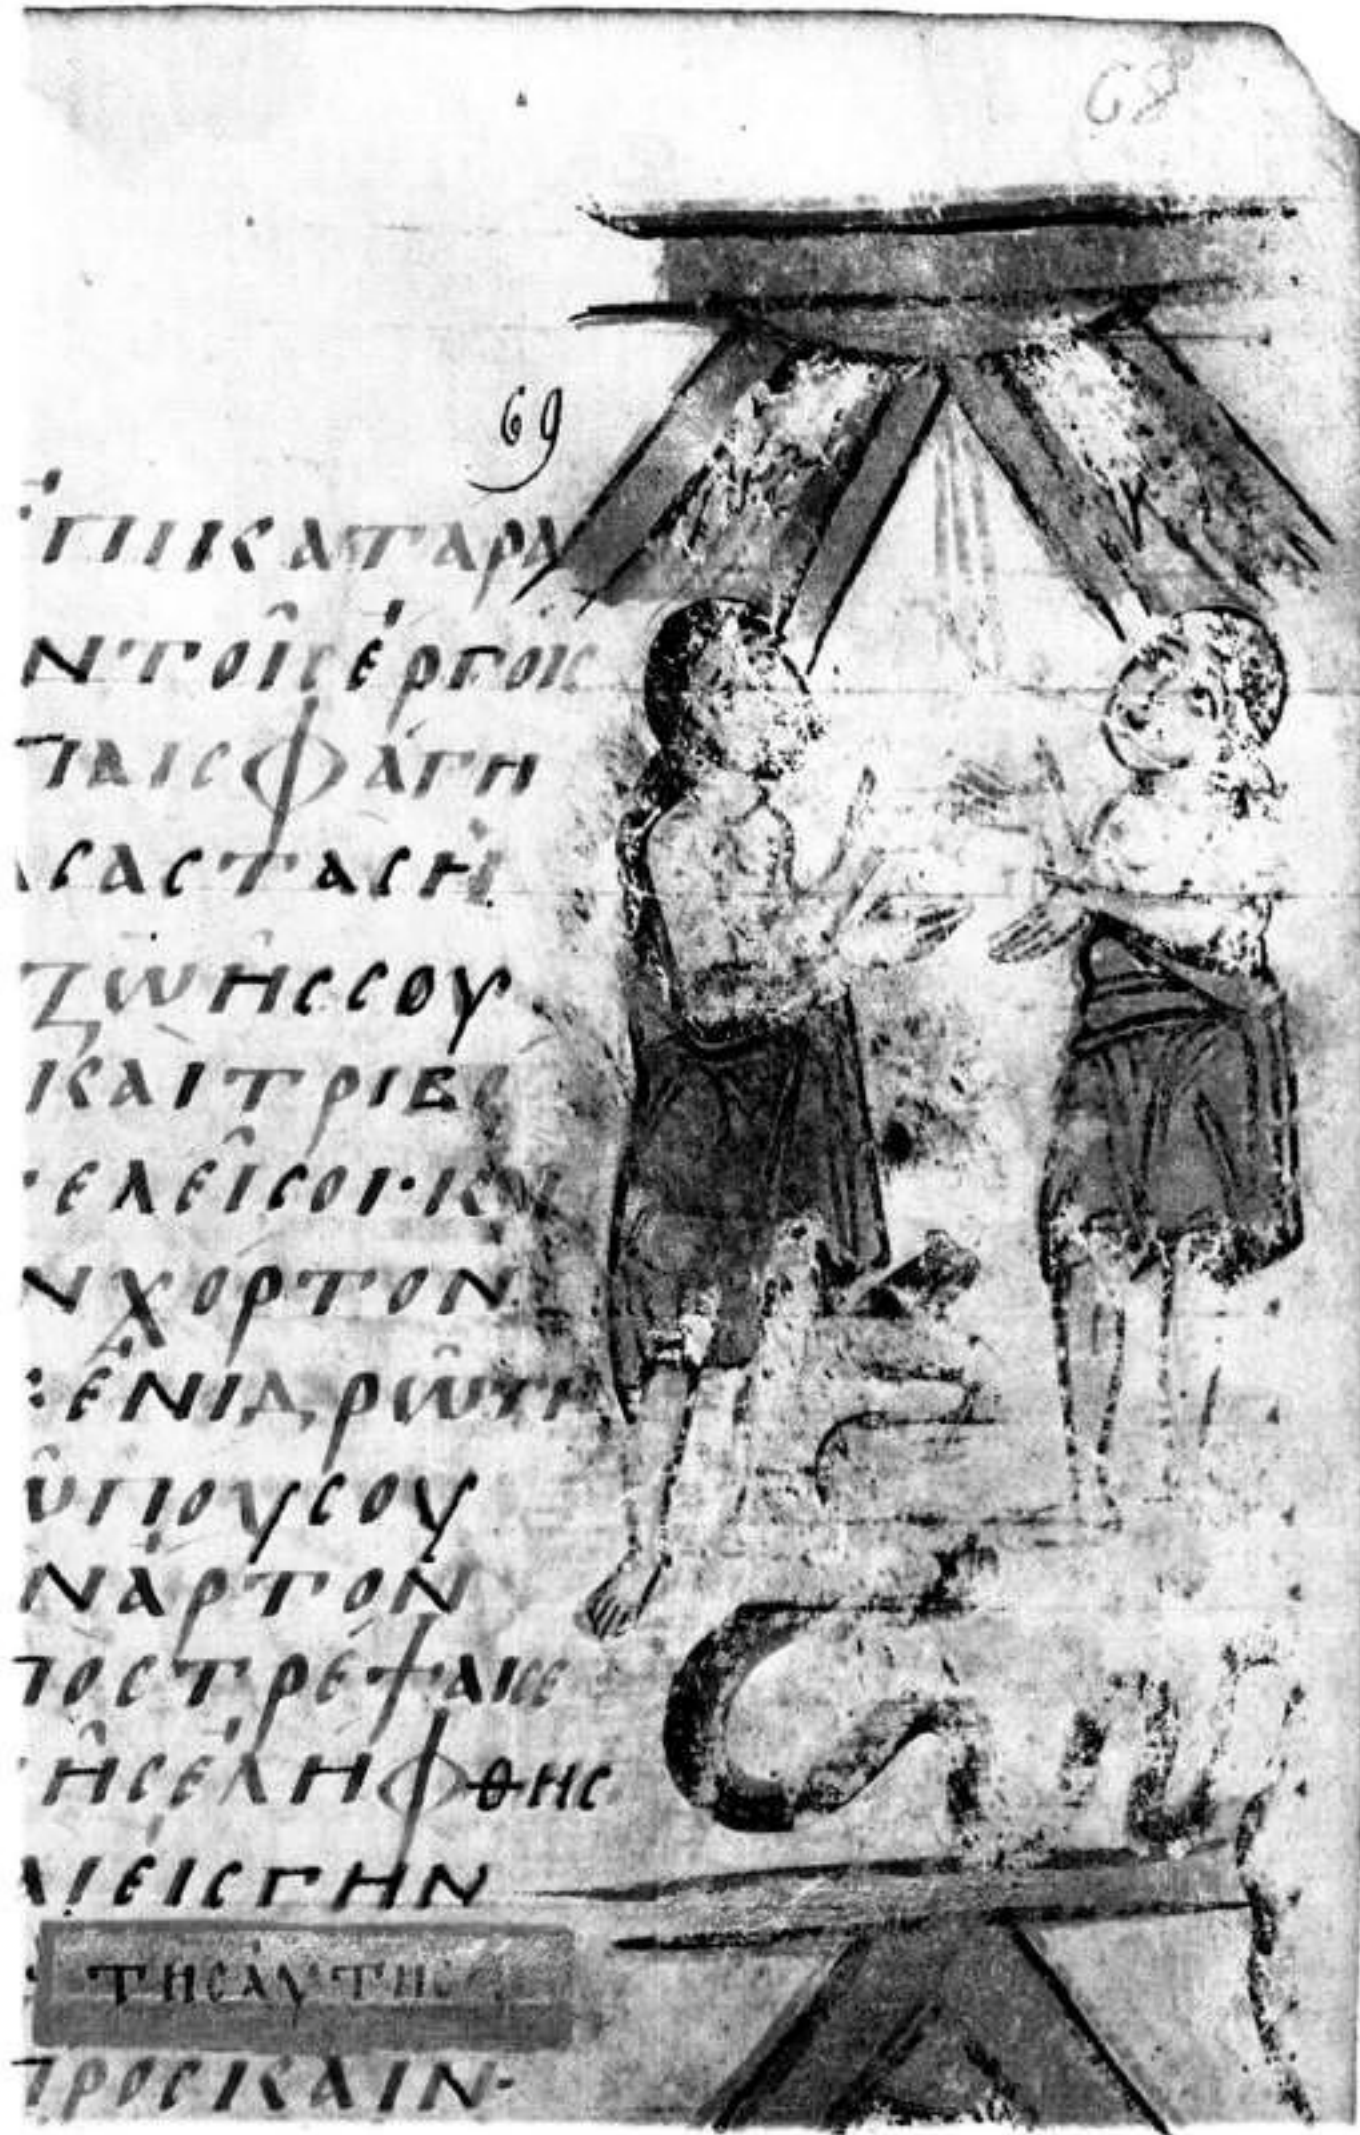 68
69
ἘΠΙΚΑΤΑΡΑ
ΝΤΟΙ͂Ϲ ἘΡΓΟΙϹ
ΠΑΙϹ ΦΆΓΗ
ϹΑϹΤΑϹΗ͂
ΖΩΗ͂ϹϹΟΥ
ΚΑΙΤΡΙΒΟ
ΕΛΕΙ͂ϹΟΙ·Κ
ΝΧΟΡΤΟΝ
:ἘΝΙΔΡΩ͂ΤΗ
ΩΠΟΥϹΟΥ
ΝΆΡΤΟΝ
ΠΟϹΤΡΈΨΑΙϹΕ
Η͂ϹἘΛΗΦΘΗϹ
ΑΙΕΙϹΓΗΝ
ΤΗϹΑΥΤΗϹ
ΠΡΟϹΚΑΙΝ·